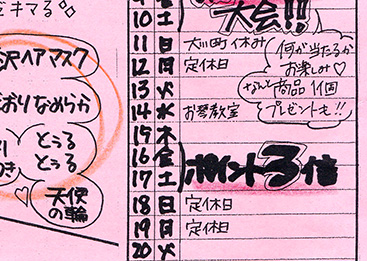 ミキマる
沢ヘアマスク
おりなめらか
とぅる
とぅる
天使
の輪
10 土 大会!!
11 日 大川町休み
12 月 定休日
13 火
14 水 お琴教室
15 木
16 金
17 土 ポイント3倍
18 日 定休日
19 月 定休日
20 火
何が当たるか
お楽しみ♡
なんと商品11個
プレゼントも!!